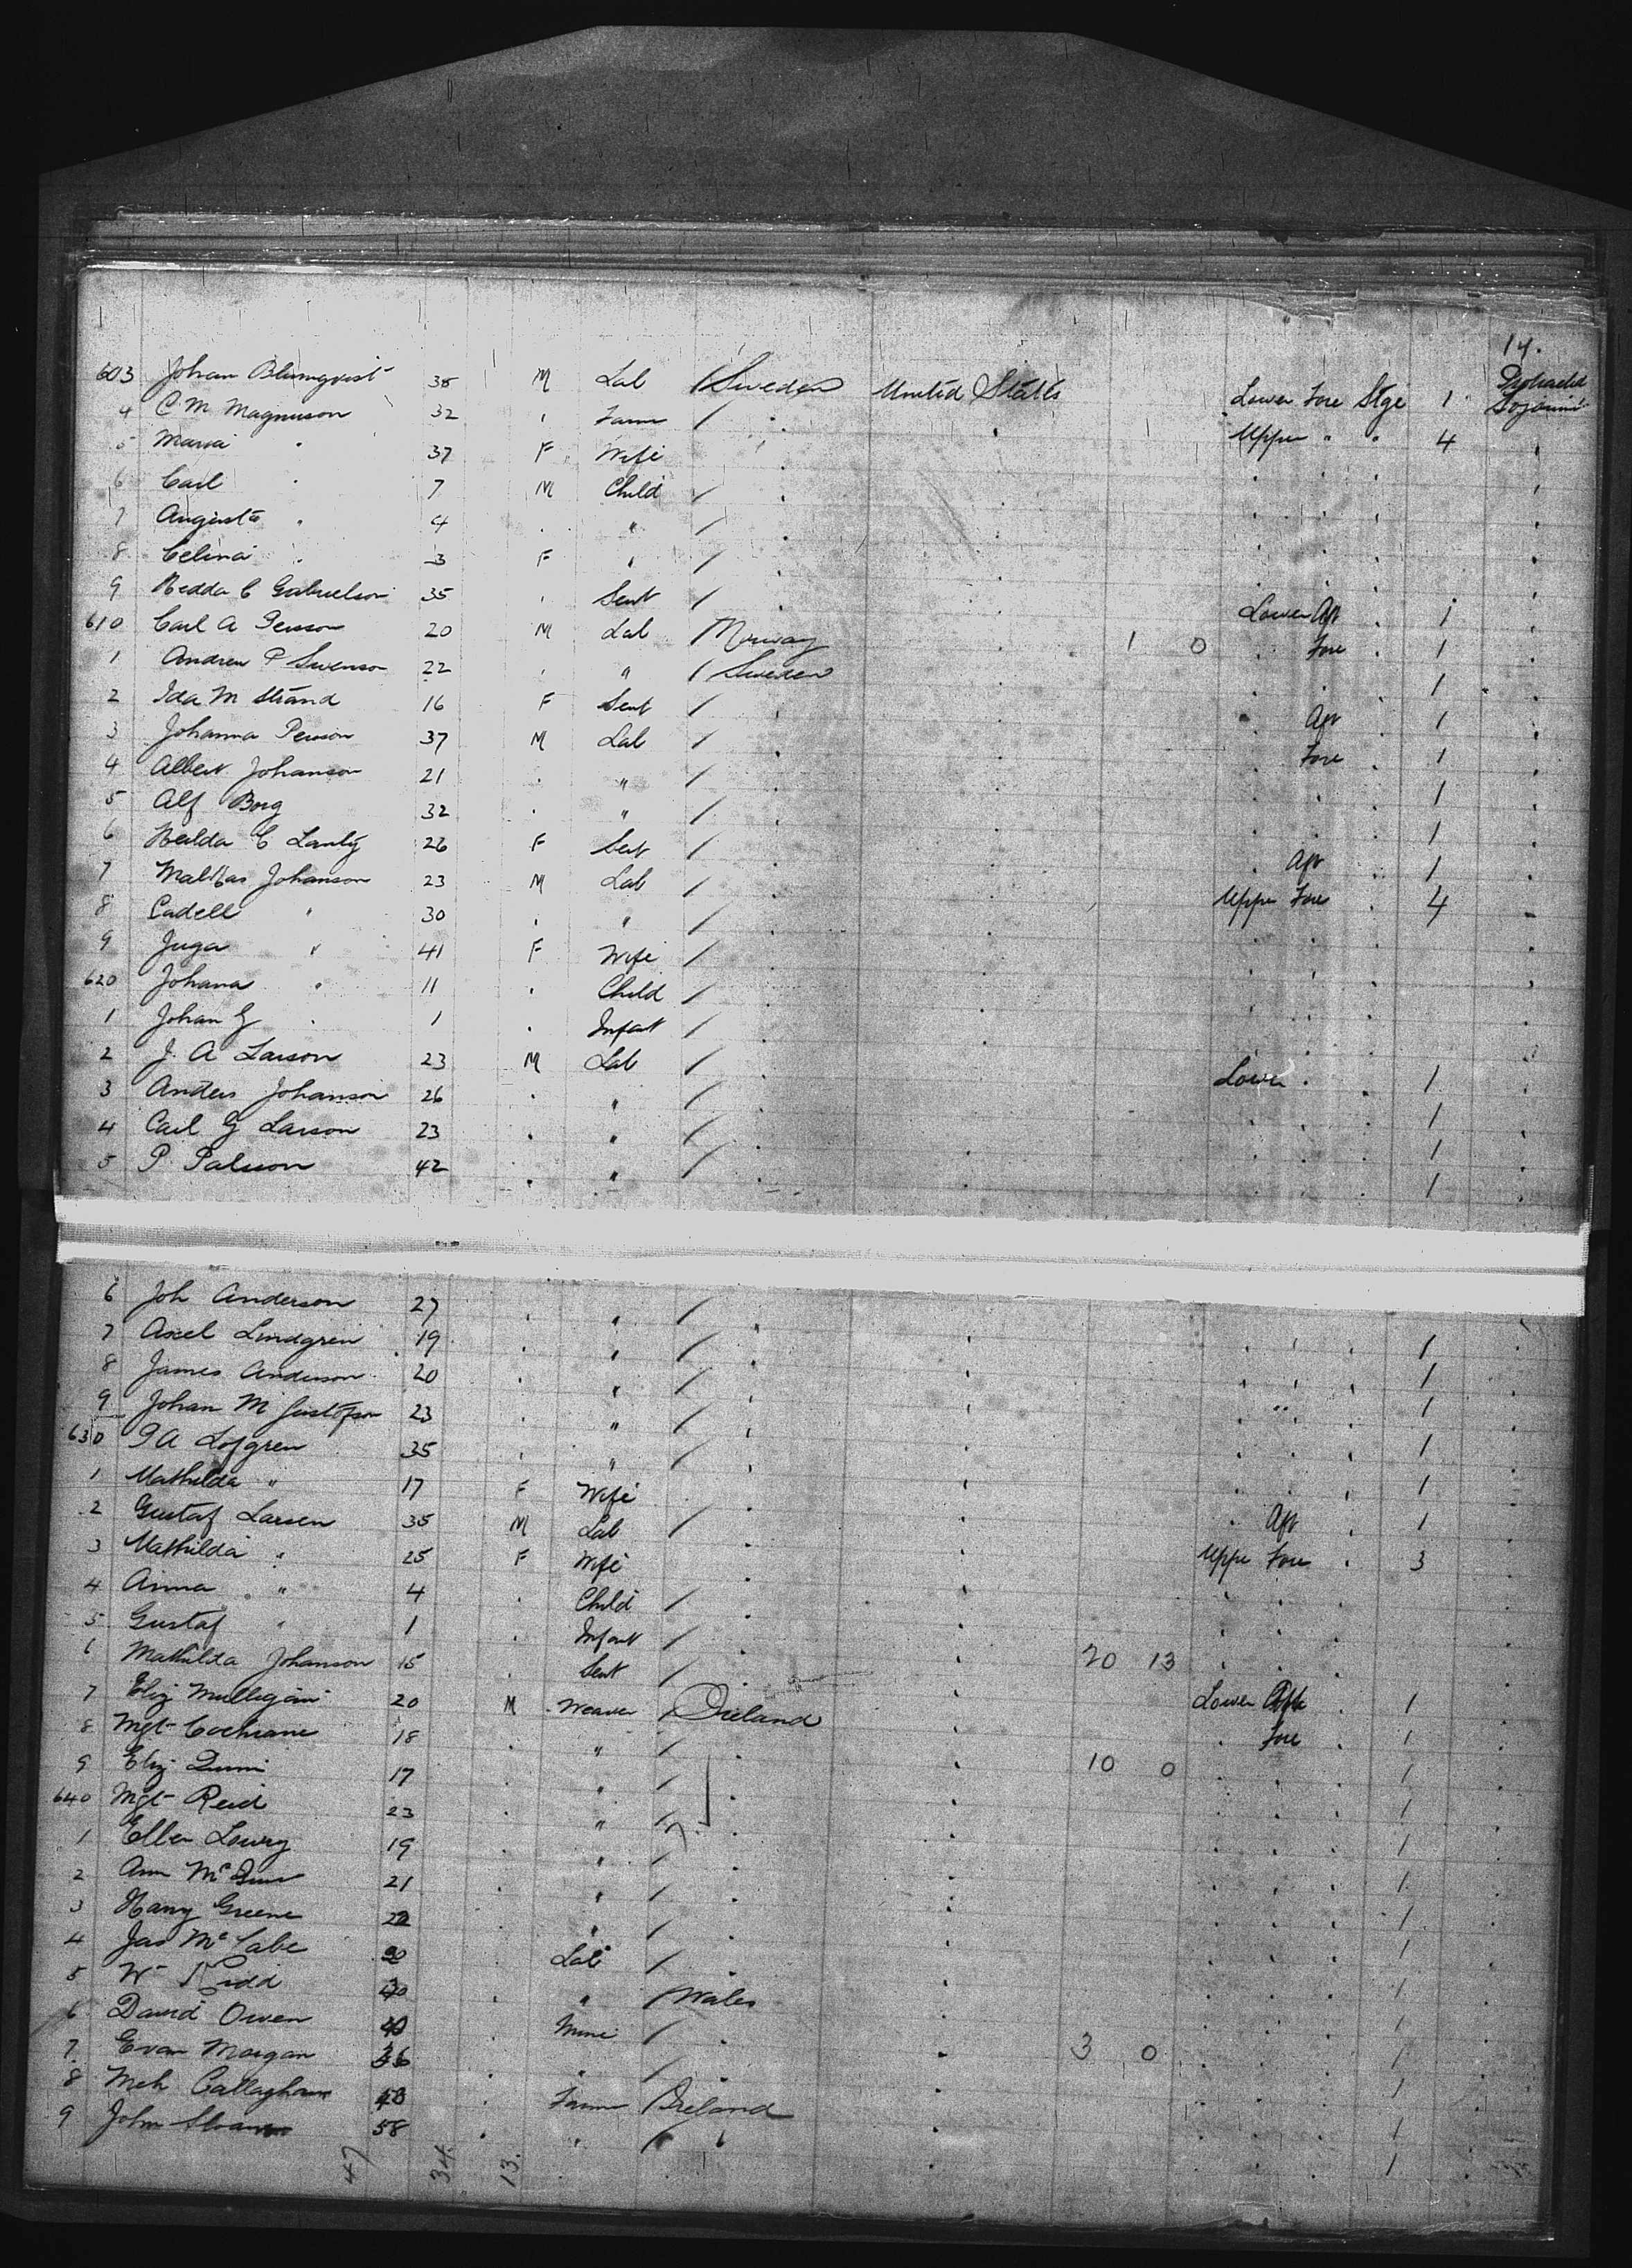 14.
603 Johan Blumqvist 38 M Lab / Sweden United States Lower Fore Stge 1 Protracted Sojourn
4 C M Magnuson 32 " Farm / " " Upper " " 4 "
5 Maria " 37 F Wife " " " " " "
6 Carl " 7 M Child / " " " " " "
7 Augusta " 4 " " / " " " " " "
8 Celina " 3 F " / " " " " " "
9 Hedda C Gabrielson 35 " Sevt / " " Lower Aft " 1 "
610 Carl A Person 20 M Lab / Norway " 1 0 " Fore " 1 "
1 Andrew P Swenson 22 " " / Sweden " " " " 1 "
2 Ida M Strand 16 F Sevt / " " " Aft " 1 "
3 Johanna Person 37 M Lab / " " " Fore " 1 "
4 Albert Johanson 21 " " / " " " " " 1 "
5 Alf Borg 32 " " / " " " " " 1 "
6 Healda C 26 F Sevt / " " " Aft " 1 "
7 Johanson 23 M Lab / " " Upper Fore " 4 "
8 Cadell " 30 " " / " " " " " "
9 Juga " 41 F Wife / " " " " " "
620 Johana " 11 " Child / " " " " " "
1 Johan G " 1 " Infant / " " " " " "
2 J. A Larson 23 M Lab / " " Lower " " 1 "
3 Anders Johanson 26 " " / " " " " " 1 "
4 Carl G Larson 23 " " / " " " " " 1 "
5 P. Palsson 42 " " / " " " " " 1 "
6 Joh Anderson 27 " " / " " " " " 1 "
7 Axel Lindgren 19 " " / " " " " " 1 "
8 James Anderson 20 " " / " " " " " 1 "
9 Johan M Gustofson 23 " " / " " " " " 1 "
630 P A Lofgren 35 " " / " " " " " 1 "
1 Mathilda " 17 F Wife " " " Aft " 1 "
2 Gustaf Larsen 35 M Lab / " " Upper Fore " 3 "
3 Mathilda " 25 F Wife " " " " " "
4 Anna " 4 " Child / " " " " " "
5 Gustaf " 1 " Infant / " " 20 13 " " "
6 Mathilda Johanson 15 " Sevt / " " Lower Aft " 1 "
7 Eliz Mulligan 20 M Weaver / Ireland " " Fore " 1 "
8 Mgt Cochrane 18 " " / " " 10 0 " " " 1 "
9 Eliz Quinn 17 " " / " " " " " 1 "
640 Mgt Reid 23 " " / " " " " " 1 "
1 Ellen Lowry 19 " " / " " " " " 1 "
2 Ann Mc 21 " " / " " " " " 1 "
3 Harry Greene 22 " " / " " " " " 1 "
4 Jas McCabe " Lab / " " " " " 1 "
5 Wm Kidd " " / Wales " " " " 1 "
6 David Owen " Mine / " " 3 0 " " " 1 "
7 Evan Morgan 36 " " / " " " " " 1 "
8 Mch Callaghan " Farm / Ireland " " " " 1 "
9 John Sloan 58 " " / " " " " " 1 "
47 34. 13.